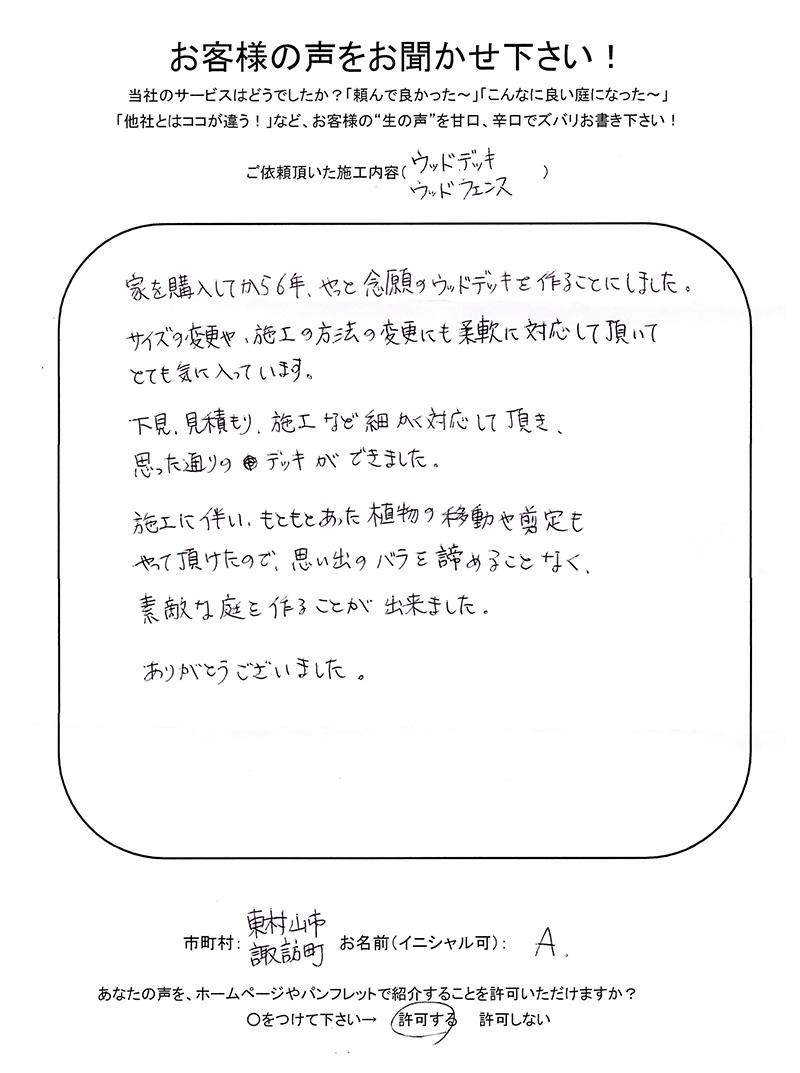 お客様の声をお聞かせ下さい！
当社のサービスはどうでしたか？「頼んで良かった〜」「こんなに良い庭になった〜」
「他社とはココが違う！」など、お客様の“生の声”を甘口、辛口でズバリお書き下さい！
ご依頼頂いた施工内容（ウッドデッキ
ウッドフェンス）
家を購入してから6年、やっと念願のウッドデッキを作ることにしました。
サイズの変更や、施工の方法の変更にも柔軟に対応して頂いて
とても気に入っています。
下見、見積もり、施工など細かく対応して頂き、
思った通りのデッキができました。
施工に伴い、もともとあった植物の移動や剪定も
やって頂けたので、思い出のバラを諦めることなく、
素敵な庭を作ることが出来ました。
ありがとうございました。
市町村：東村山市
諏訪町 お名前（イニシャル可）：A.
あなたの声を、ホームページやパンフレットで紹介することを許可いただけますか？
○をつけて下さい→ 許可する 許可しない